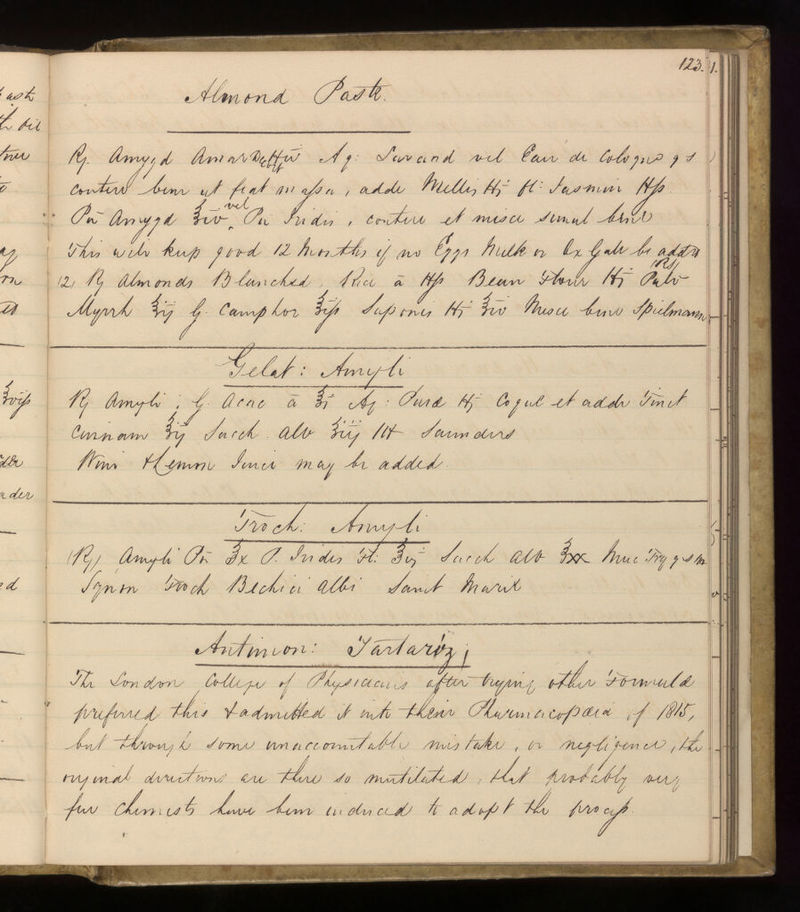 123.
Almond Paste.
℞. Amygd Amar Aq: Lavand vel Eau de Cologne qs
contere bene ut fiat massa, adde Mellis ℔j Fl: Jasmin ℔ß
Pu Amygd ℥iv vel Pu Iridis, contere et misce simul bene
This will keep good 12 Months if no Eggs Milk or Ox Gall be added
(2) ℞ Almonds Blanched, Rice a ℔ß Bean Flour ℔j Pulv
Myrrh ℥ij G. Camphor Saponis ℔j ℥iv Misce bene Spielmann
Gelat: Amyli
℞ Amyli, G. Acac a ℥j Aq: Puræ ℔j Coque et adde Tinct
Cinnam ℥ij Sacch. alb ℥iij Saunders
Wine & Lemon Juice may be added.
Troch: Amyli
(℞) Amyli Pu ℥x P. Iridis Fl: Sacch alb ℥xx Muc Trag qs m
Synon Troch Bechici Albi Sanct Mariæ
Antimon: Tartariz;
The London College of Physicians after trying other Formulæ
preferred this & admitted it into their Pharmacopœia of 1815,
but through some unaccountable mistake, or negligence, the
original directions are there so mutilated, that probably very
few Chemists have been induced to adopt the process.